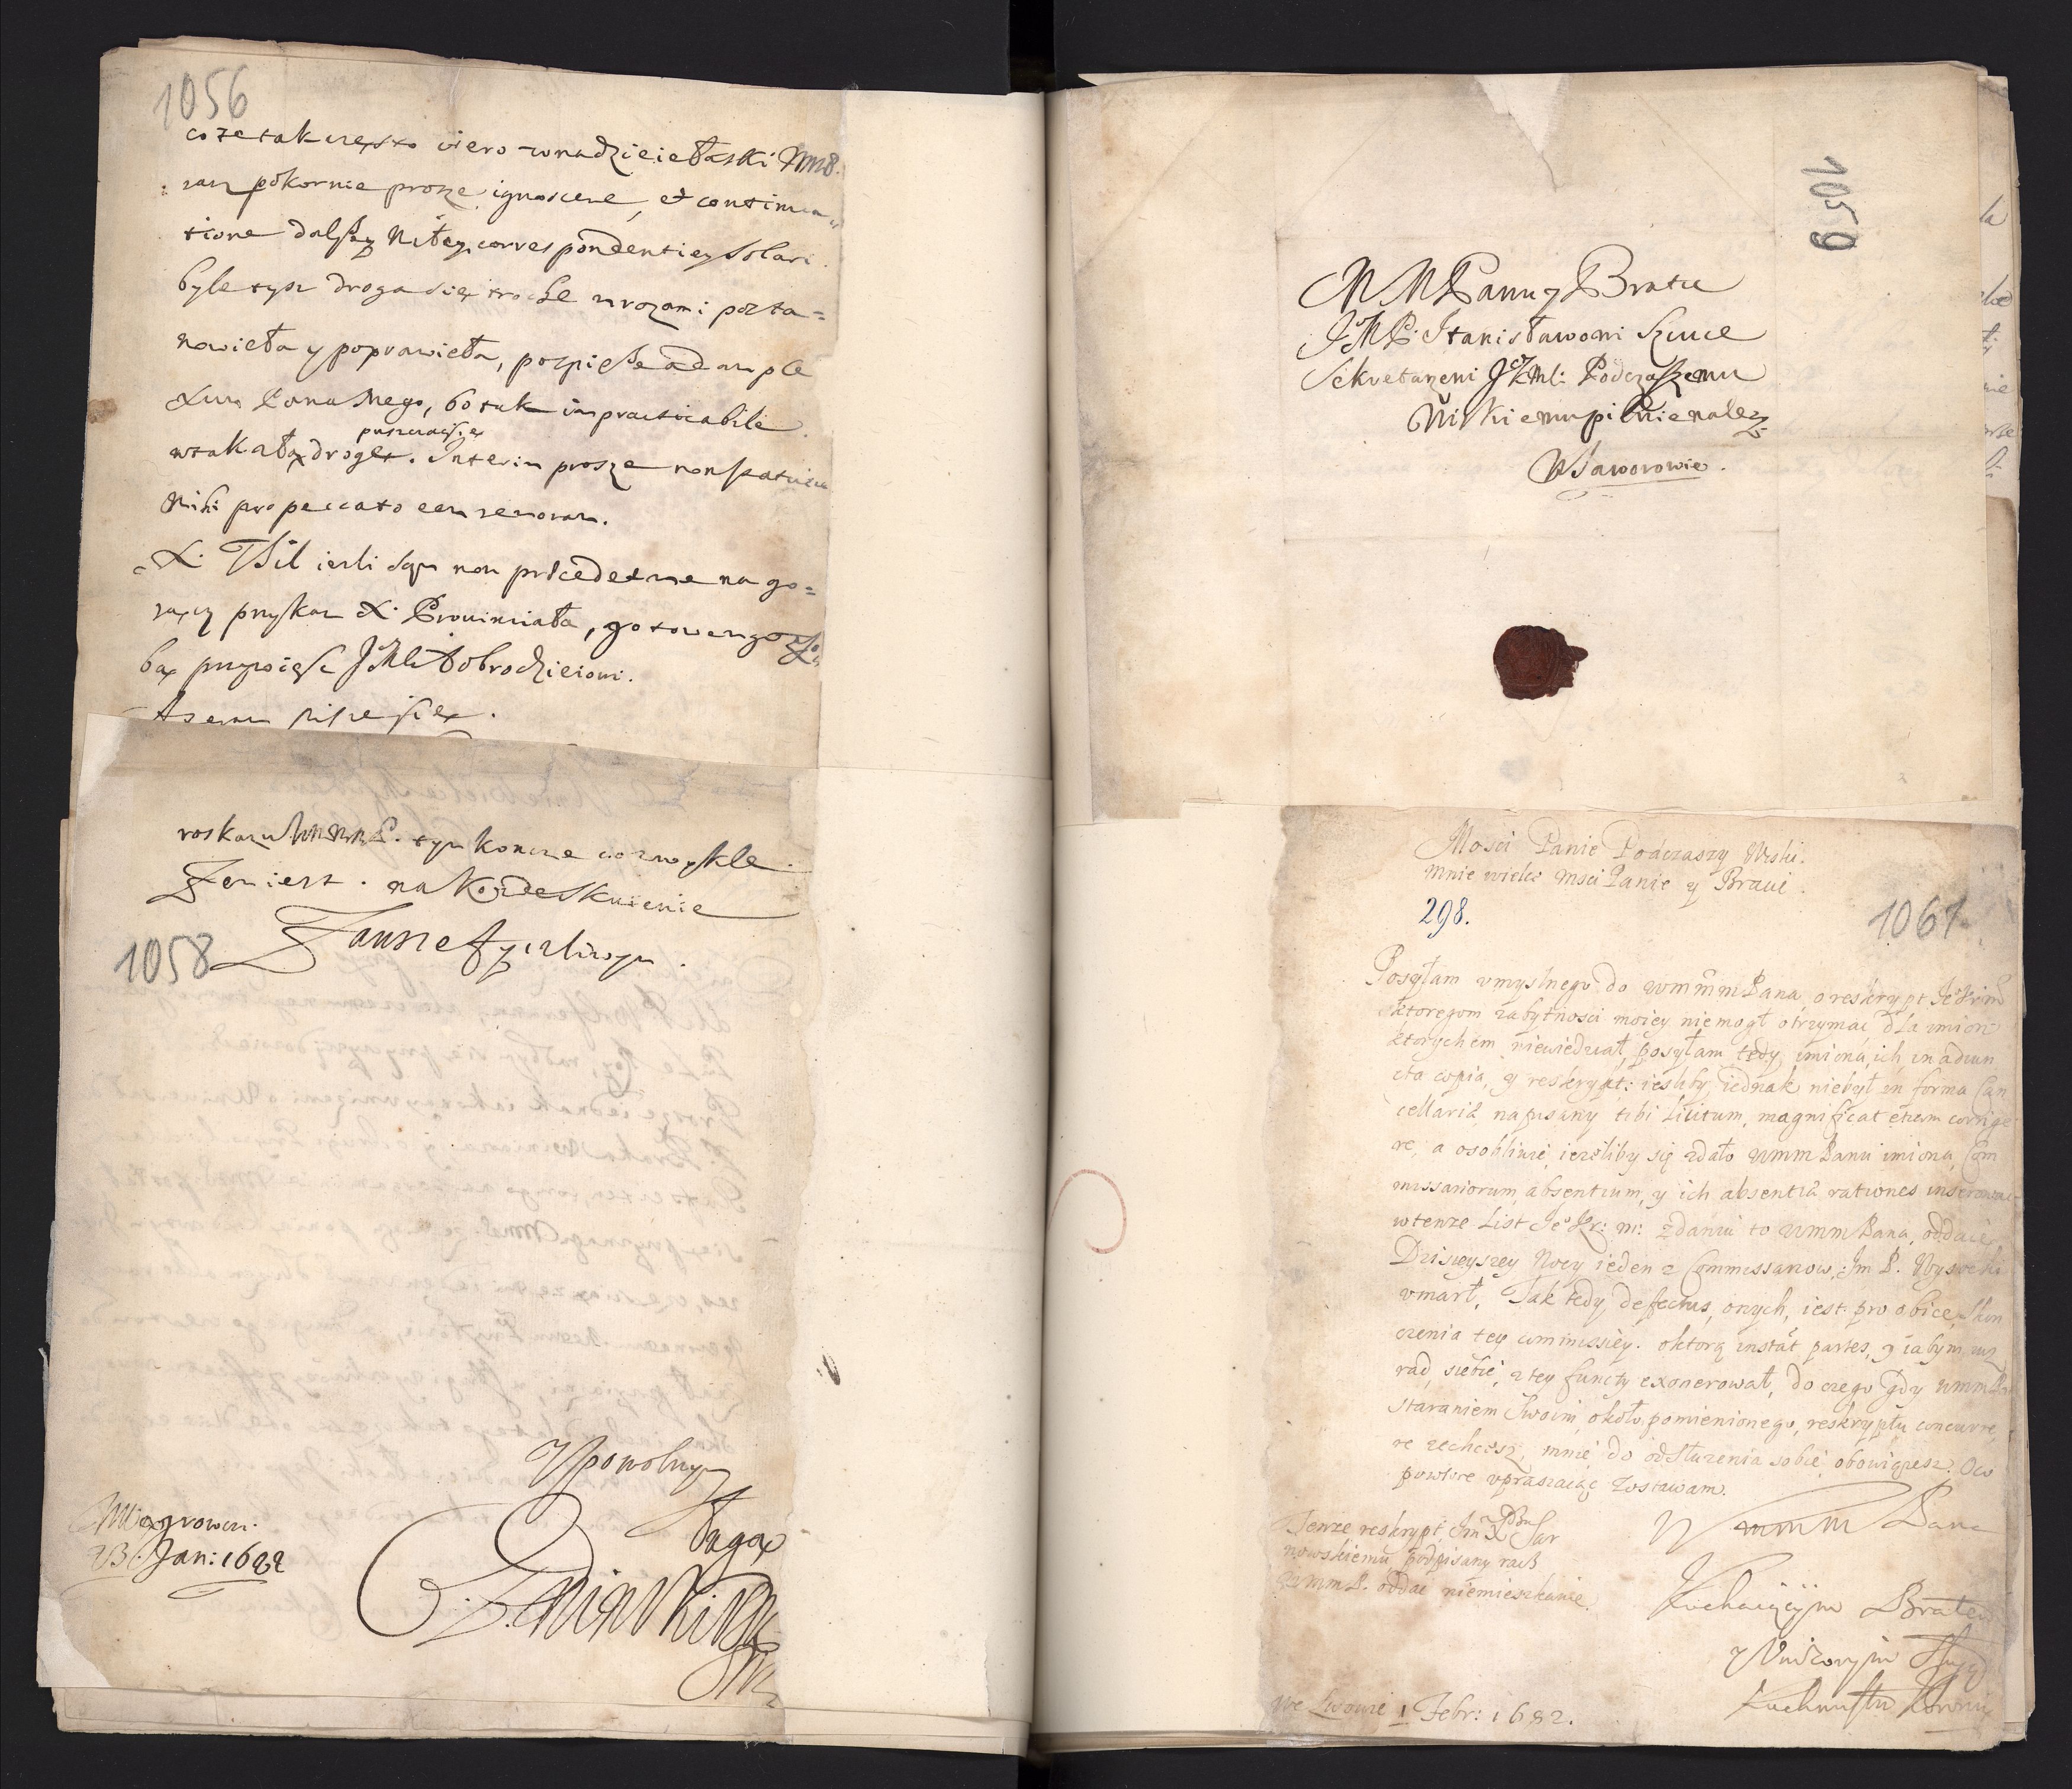 1056
co ze tak często viero w nadzieie łaski
pokornie prosze ignoscere, et continua
tione dalszey Miłey correspondentiey solari.
byle tysz droga się troche mrozami posta=
nowieła y poprawieła, pospiesze ad ample
xum Pana Mego, bo tak impracticabile
puszczać się
w takałą drogę. Interim prosze non statuere
mihi pro peccato eam remoram.
X. Bil iesli sam non procedet na go=
rący przyskaz X. Prowinciała, gotowem go z so
bą przywieść JMci Dobrodzieiowi.
Aże mi pisze się.
roskazu WMMMP. tym koncze co zwykle
Zem iest. na Kożde Skinienie
Zawsze Życzliwym.
1058
Y powolnym
Sługą
Węgrowcu.
23 Jan: 1682
1059
M M Panu y Bratu
JeMP. Stanisławowi Szczuce
Sekretarzowi JKMci: Podczaszemu
Wiskiemu pilnie należy
W Jaworowie.
Mosci Panie Podczaszy Wiski.
Mnie wielce Msci Panie y Bracie.
298.
1061
Posyłam vmyslnego do WmmmPana o reskrypt JeKrim
ktoregom za bytnosci moiey nie mogł otrzymać dla imion
ktorychem niewiedział, posyłam tedy imiona ich in adiun
cta copia, y reskrypt: iesliby iednak niebył in forma Can
cellaria napisany tibi licitum, magnificat etiam corrige
re, a osobliwie, iezeliby się zdało WmmPanu imiona Com
missariorum absentium, y ich absentia rationes inserowac
w tenze List Jeo Kr: m: zdaniu to WmmPana, oddaie
Dzisieyszey Nocy ieden z Commissarzow, Jm P. Wysocki
vmarł, Tak tedy defectus, onych, iest pro obice, Skon
czenia tey commissiey. o ktorą instāt partes, y iabym
rad, siebie, z tey functy exonerował, do czego gdy WmmPan
staraniem swoim około pomienionego, reskryptu concurre
re zechcesz, mnie do odsłuzenia sobie obowiązesz. O co
powtore vpraszaiąc zostawam.
Tenze reskrypt Jm X Sar
nowskiemu podpisany racz
WmmP. oddac niemieszkanie.
W mmm Pana
Kochaiącym Bratem
y Vnizonym Sługą
we Lwowie 1 Febr: 1682.